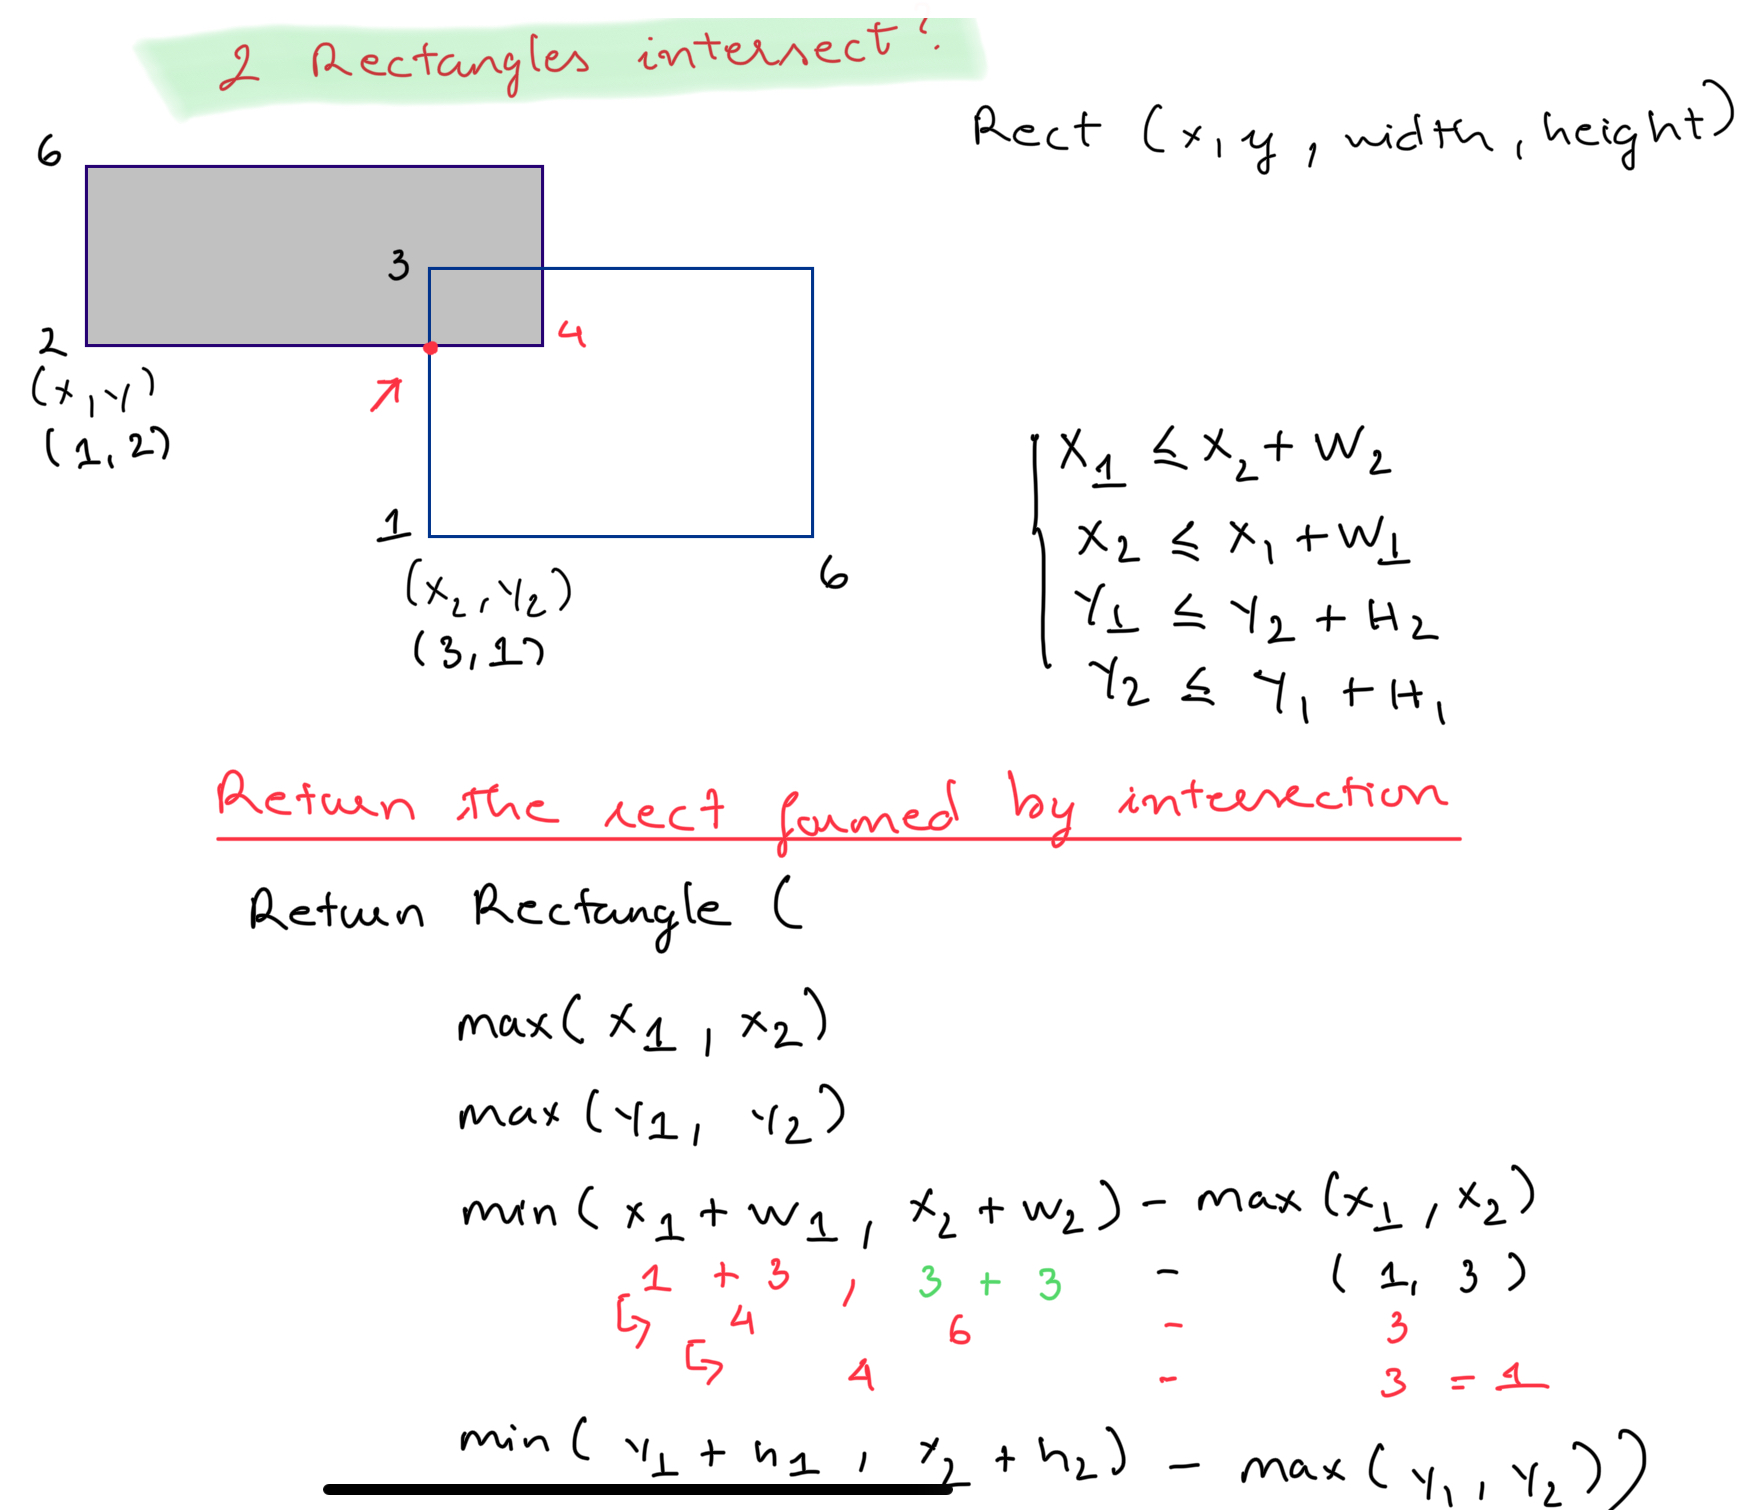 2 Rectangles intersect?
Rect (x, y, width, height)
6
3
2
4
(x, y)
(1, 2)
1
6
(x2, y2)
(3, 1)
x1 ≤ x2 + W2
x2 ≤ x1 + W1
Y1 ≤ Y2 + H2
Y2 ≤ Y1 + H1
Return the rect formed by intersection
Return Rectangle (
max( x1 , x2 )
max ( Y1, Y2 )
min ( x1 + w1 , x2 + w2 ) - max (x1 , x2 )
1 + 3 , 3 + 3 - ( 1, 3 )
4 6 - 3
4 - 3 = 1
min ( Y1 + h1 , Y2 + h2 ) - max ( Y1 , Y2 ))